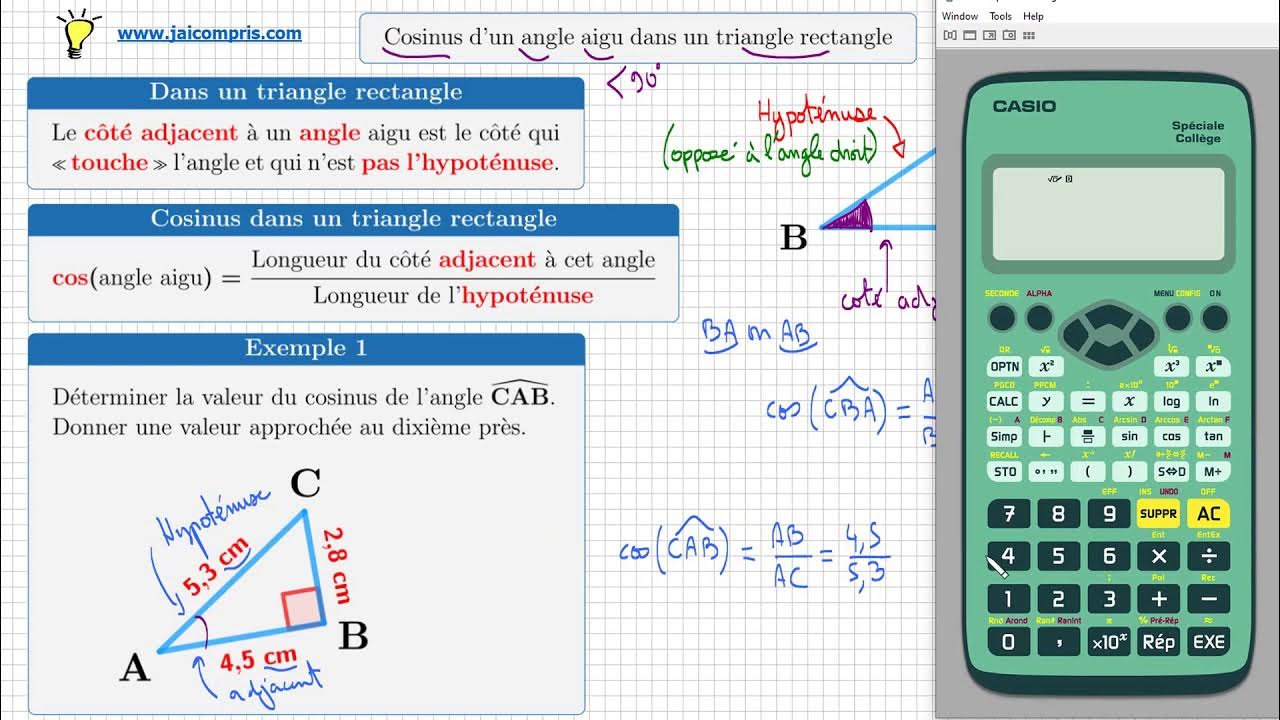 www.jaicompris.com
Cosinus d'un angle aigu dans un triangle rectangle
< 90°
Dans un triangle rectangle
Le côté adjacent à un angle aigu est le côté qui
« touche » l'angle et qui n'est pas l'hypoténuse.
Cosinus dans un triangle rectangle
cos(angle aigu) = Longueur du côté adjacent à cet angle
Longueur de l'hypoténuse
Exemple 1
Déterminer la valeur du cosinus de l'angle CAB.
Donner une valeur approchée au dixième près.
C
Hypoténuse
5,3 cm
2,8 cm
A
4,5 cm
B
adjacent
Hypoténuse
(opposé à l'angle droit)
B
coté adj
BA ou AB
cos(CBA) = A
B
cos(CAB) = AB = 4,5
AC 5,3
Window Tools Help
CASIO
Spéciale
Collège
SECONDE ALPHA MENU CONFIG ON
OPTN x² x³ x■
PGCD PPCM : a×10ⁿ 10■ e■
CALC y = x log ln
(−) A Décomp B Abs C Arcsin D Arccos E Arctan F
Simp sin cos tan
RECALL ← x⁻¹ x! M− M
STO ° ’ ” ( ) S⇔D M+
EFF INS UNDO OFF
7 8 9 SUPPR AC
Ent EntEx
4 5 6 × ÷
; Pol Rec
1 2 3 + −
Rnd Arond Ran# RanInt π % Pré-Rép ≈
0 , ×10ˣ Rép EXE